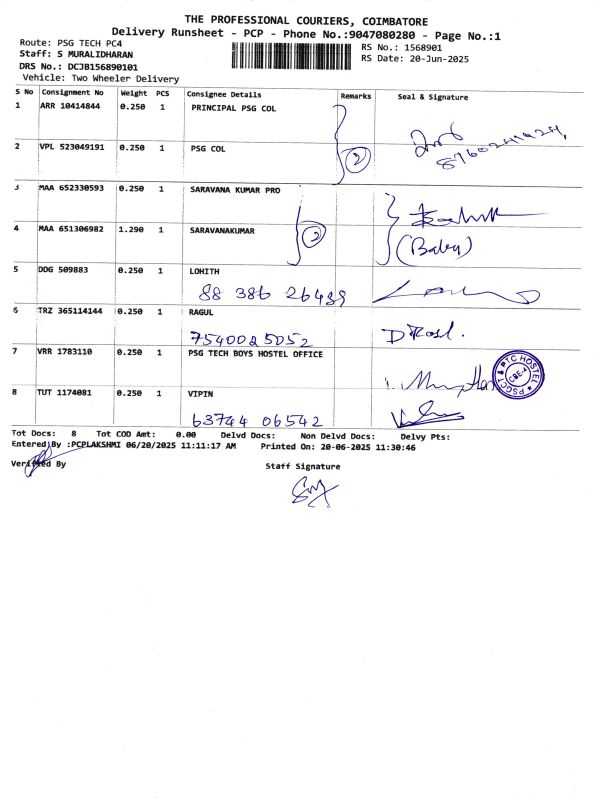 THE PROFESSIONAL COURIERS, COIMBATORE
Delivery Runsheet - PCP - Phone No.:9047080280 - Page No.:1
Route: PSG TECH PC4
RS No.: 1568901
Staff: S MURALIDHARAN
RS Date: 20-Jun-2025
DRS No.: DCJB156890101
Vehicle: Two Wheeler Delivery
S No Consignment No Weight PCS Consignee Details Remarks Seal & Signature
1 ARR 10414844 0.250 1 PRINCIPAL PSG COL
2 VPL 523049191 0.250 1 PSG COL
2
3 MAA 652330593 0.250 1 SARAVANA KUMAR PRO
4 MAA 651306982 1.290 1 SARAVANAKUMAR
2
(Babu)
5 DDG 509883 0.250 1 LOHITH
88 386 26489
6 TRZ 365114144 0.250 1 RAGUL
7540025052
7 VRR 1783110 0.250 1 PSG TECH BOYS HOSTEL OFFICE
PSGCT & PTC HOSTEL
CBE-4
8 TUT 1174081 0.250 1 VIPIN
63744 06542
Tot Docs: 8 Tot COD Amt: 0.00 Delvd Docs: Non Delvd Docs: Delvy Pts:
Entered By :PCPLAKSHMI 06/20/2025 11:11:17 AM Printed On: 20-06-2025 11:30:46
Verified By
Staff Signature